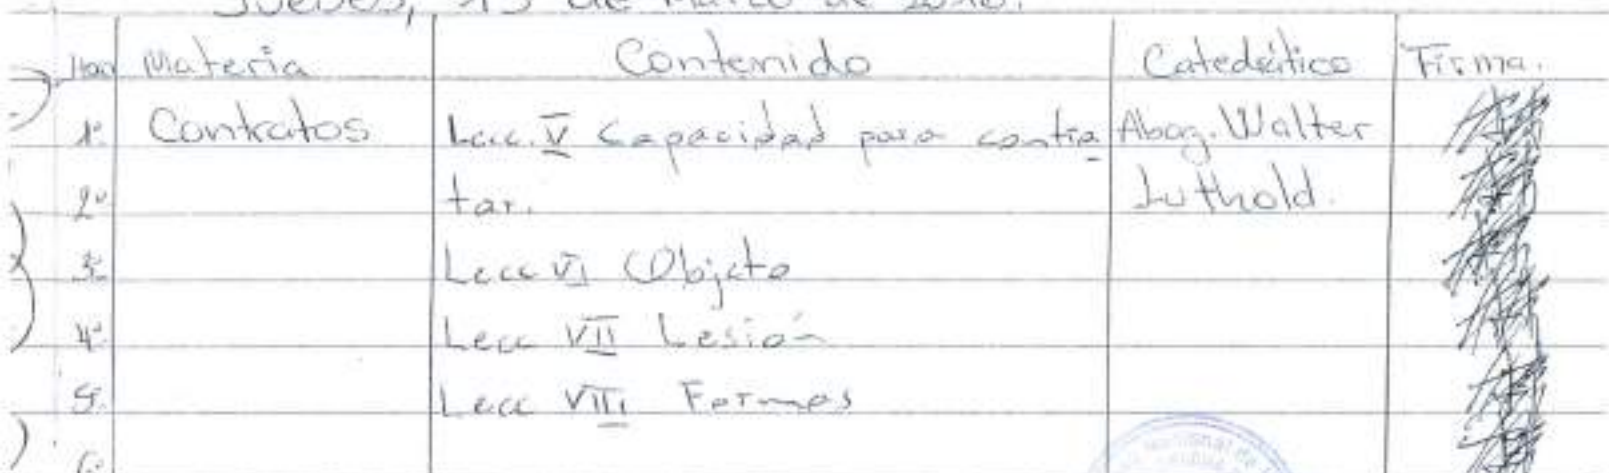 Jueves, 15 de Marzo de 2018.
Hora Materia Contenido Catedrático Firma.
1º Contratos Lecc. V Capacidad para contra Abog. Walter
2º tar. Luthold.
3º Lecc VI Objeto
4º Lecc VII Lesión
5º Lecc VIII Formas
6º